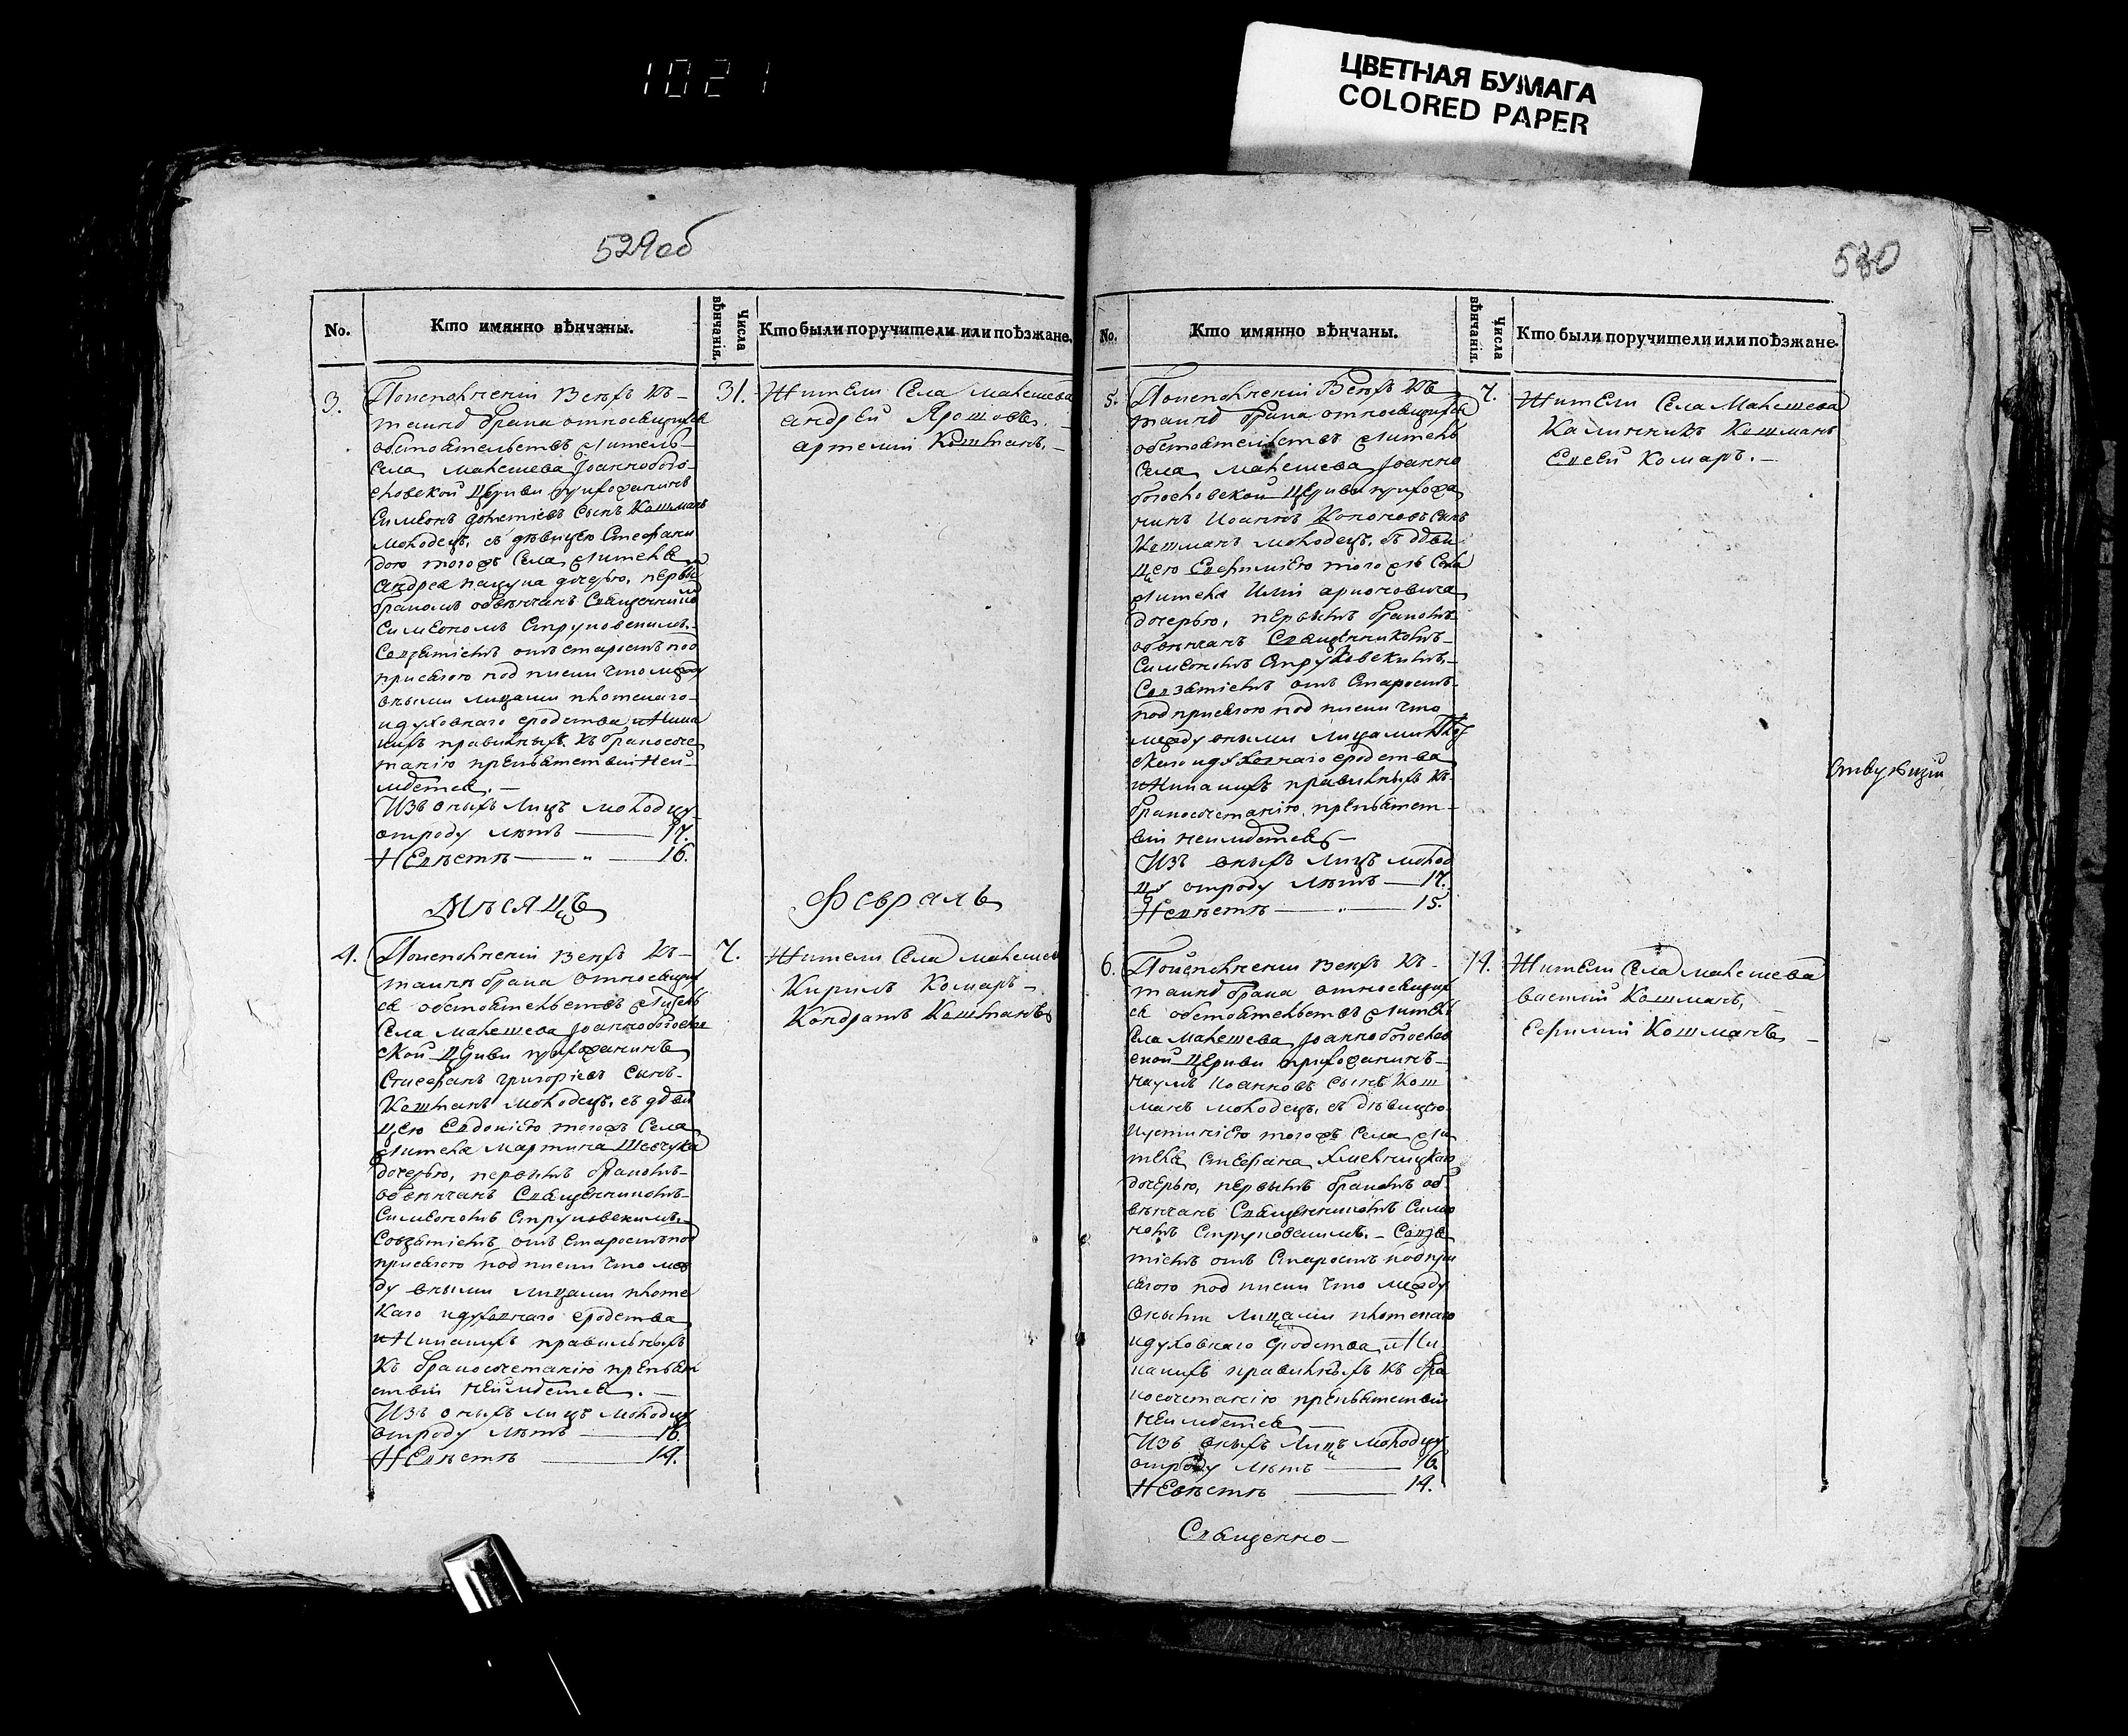 1021
ЦВЕТНАЯ БУМАГА
COLORED PAPER
529об
No.
Кто имянно вѣнчаны.
Числа вѣнчанія.
Кто были поручители или поѣзжане.
3.
Поисполненіи Всехъ Къ-
таинѣ брака относящихся
обстоятельствъ житель
Села Макешева Іоаннобого-
словской Церкви прихожанинъ
Симеонъ сынъ Кошманъ
молодецъ, съ дѣвицею Стефани
дою тогожъ Села жителя
Андрея Пацука дочерью, первы
бракомъ обвѣнчанъ Священникомъ
Симеономъ Струковскимъ.
Совзятіемъ отъ старостъ под
присягою подписки что между
оными лицами плотскаго-
идуховнаго сродства иНика
кихъ правильныхъ къ бракосоче
танію препятствій Неи-
мѣется.-
Изъ оныхъ Лицъ молодцу
отроду Лѣтъ 17.
НЕвѣстѣ " 16.
31.
Жители Села Макешева
Андрей Ярошовъ.
Артемий Кошманъ.-
Мѣсяцъ
Февраль
4.
Поисполненіи Всехъ Къ-
таинѣ брака относящих
ся обстоятельствъ житель
Села Макешева Іоаннобогослов
ской Церкви прихожанинъ
Стефанъ Григоріевъ Сынъ-
Кошманъ молодецъ, съ дѣви
цею Евдокіею тогожъ Села
жителя Мартина Шевчука
дочерью, первымъ бракомъ-
обвѣнчанъ Священникомъ-
Симеономъ Струковскимъ.
Совзятіемъ отъ Старостъ под
присягою подписки что меж
ду оными лицами плотс
каго идуховнаго сродства
иНикакихъ правильныхъ
Къ бракосочетанію препят
ствій Неимѣется.-
Изъ оныхъ лицъ молодцу
отроду Лѣтъ 16.
НЕвѣстѣ 14.
7.
Жители Села Макешева
Кирилъ Комаръ-
Кондратъ Кошманъ
580
No.
Кто имянно вѣнчаны.
Числа вѣнчанія.
Кто были поручители или поѣзжане.
5.
Поисполненіи Всехъ Къ
таинѣ брака относящихся
обстоятельствъ житель
Села Макешева Іоанно
богословской Церкви прихожа
нинъ Иоаннъ Кононовъ Сынъ
Кошманъ молодецъ, съ дѣви
цею Евфиміею тогожъ Села
жителя Иліи
дочерью, первымъ бракомъ
обвѣнчанъ Священникомъ-
Симеономъ Струковскимъ,-
Совзятіемъ отъ Старостъ-
подприсягою подписки что
между оными Лицами Плот
скаго идуховнаго сродства
иНикакихъ правильныхъ къ
бракосочетанію препятст-
вій неимѣется-
Изъ оныхъ Лицъ молод
цу отроду Лѣтъ 17.
Невѣстѣ " 15.
7.
Жители Села Макешева
Калинникъ Кошманъ
Евсей Комаръ.-
6.
Поисполненіи Всехъ Къ-
таинѣ брака относящих
ся обстоятельствъ житель
Села Макешева Іоаннобогослов
ской Церкви прихожанинъ-
Наумъ Иоанновъ сынъ Кош
манъ молодецъ, съ дѣвицею
Иустиніею тогожъ Села жи
теля Стефана Хмельницкаго
дочерью, первымъ бракомъ об
вѣнчанъ Священникомъ Симео
номъ Струковскимъ.- Совзя
тіемъ отъ Старостъ подпри
сягою подписки что между
оными лицами плотскаго
идуховнаго сродства иНи
какихъ правильныхъ къ бра
косочетанію препятствій
неимѣется-
Изъ оныхъ Лицъ молодцу
отроду Лѣтъ 16.
НЕвѣстѣ 14.
14.
Жители Села Макешева
василій Кошманъ,
Ефимій Кошманъ -
Священно-